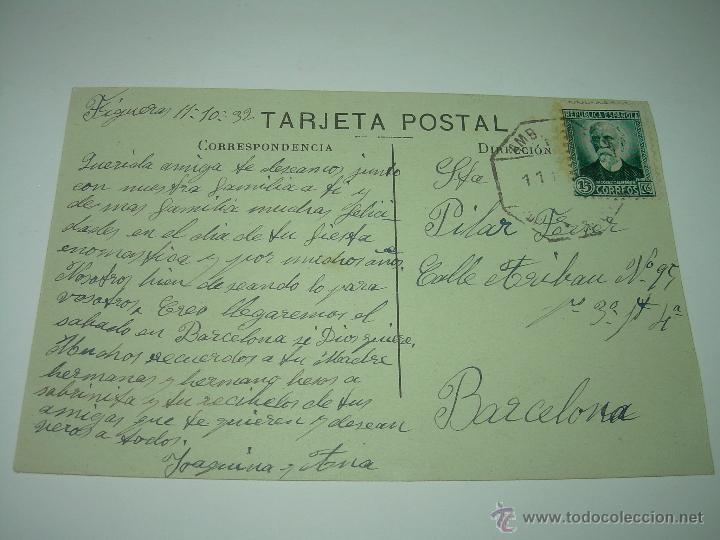 Figueras 11-10-32
TARJETA POSTAL
CORRESPONDENCIA
DIRECCIÓN
Querida amiga te deseamos junto
con nuestra familia a ti y
demas familia muchas felici
dades en el dia de tu fiesta
enomastica y por muchos años.
Nosotros bien deseando lo para
vosotros. Creo llegaremos el
sabado en Barcelona si Dios quiere.
Muchos recuerdos a tu Madre
hermanas y hermano besos a
sobrinita y tu recibelos de tus
amigas que te quieren y desean
veros a todos.
Joaquina y Ana
Srta
Pilar Ferrer
Calle Aribau Nº 95
3ª 4ª
Barcelona
REPUBLICA ESPAÑOLA
15 CORREOS CTS
AMB
11
www.todocoleccion.net